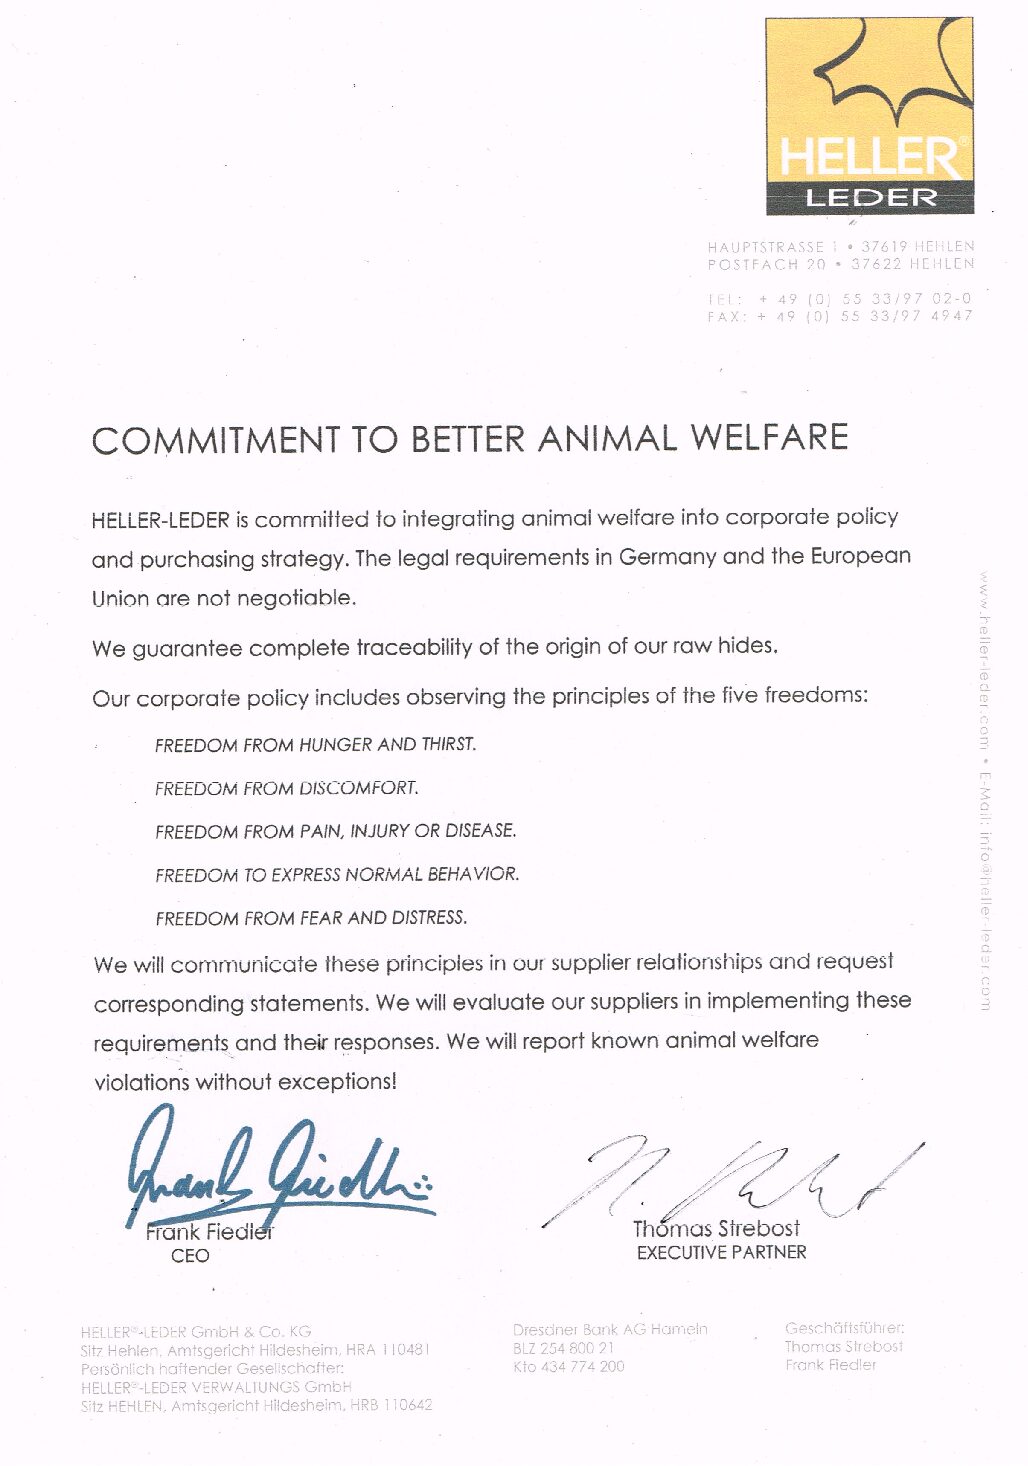 HELLER®
LEDER
HAUPTSTRASSE 1 • 37619 HEHLEN
POSTFACH 20 • 37622 HEHLEN
TEL: + 49 (0) 55 33/97 02-0
FAX: + 49 (0) 55 33/97 4947
COMMITMENT TO BETTER ANIMAL WELFARE
HELLER-LEDER is committed to integrating animal welfare into corporate policy
and purchasing strategy. The legal requirements in Germany and the European
Union are not negotiable.
We guarantee complete traceability of the origin of our raw hides.
Our corporate policy includes observing the principles of the five freedoms:
FREEDOM FROM HUNGER AND THIRST.
FREEDOM FROM DISCOMFORT.
FREEDOM FROM PAIN, INJURY OR DISEASE.
FREEDOM TO EXPRESS NORMAL BEHAVIOR.
FREEDOM FROM FEAR AND DISTRESS.
We will communicate these principles in our supplier relationships and request
corresponding statements. We will evaluate our suppliers in implementing these
requirements and their responses. We will report known animal welfare
violations without exceptions!
www.heller-leder.com • E-Mail: info@heller-leder.com
Frank Fiedler
CEO
Thomas Strebost
EXECUTIVE PARTNER
HELLER®-LEDER GmbH & Co. KG
Sitz Hehlen, Amtsgericht Hildesheim, HRA 110481
Persönlich haftender Gesellschafter:
HELLER®-LEDER VERWALTUNGS GmbH
Sitz HEHLEN, Amtsgericht Hildesheim, HRB 110642
Dresdner Bank AG Hameln
BLZ 254 800 21
Kto 434 774 200
Geschäftsführer:
Thomas Strebost
Frank Fiedler